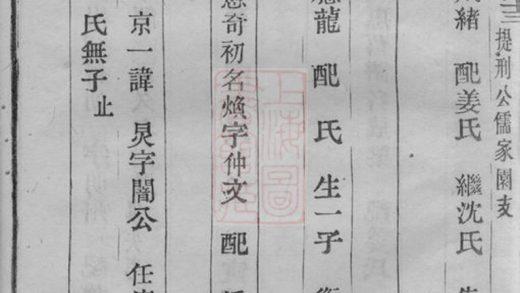 三 提刑公儒家園支
緒 配姜氏 繼沈氏
龍 配 氏 生一子
奇初名煥字仲文 配
京一諱 炅字闇公 任
氏無子 止
上海圖